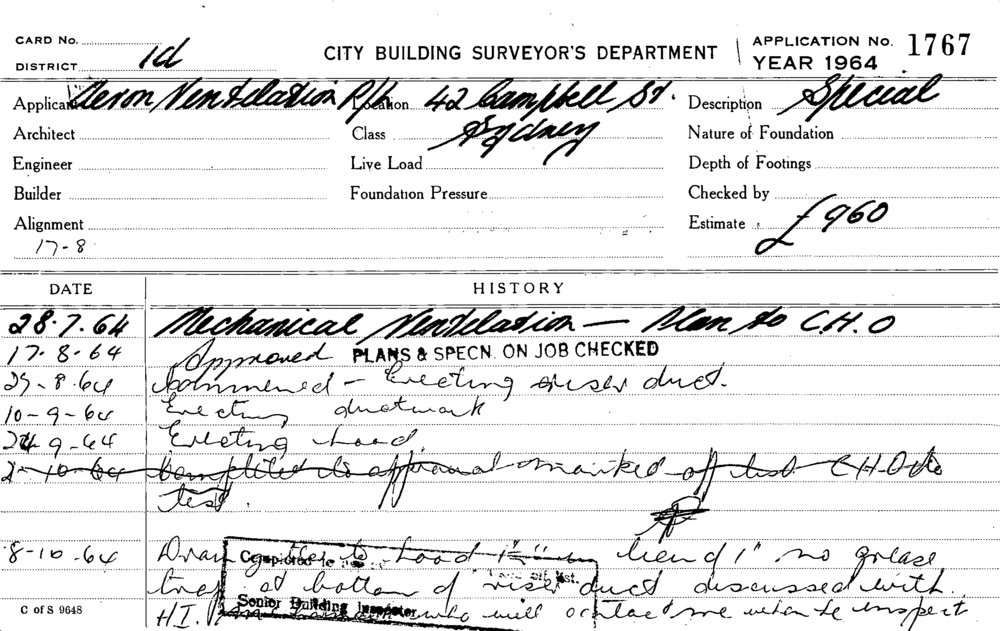 CARD No.
DISTRICT 1d
CITY BUILDING SURVEYOR'S DEPARTMENT
APPLICATION No. 1767
YEAR 1964
Applicant Aeron Ventilation P/L Location 42 Campbell St. Description Special
Architect Class Sydney Nature of Foundation
Engineer Live Load Depth of Footings
Builder Foundation Pressure Checked by
Alignment Estimate £960
17-8
DATE HISTORY
28.7.64 Mechanical Ventilation — Plan to C.H.O
17.8.64 Approved PLANS & SPECN. ON JOB CHECKED
Commenced - Erecting riser duct.
10-9-64 Erecting ductwork
9-64 Erecting hood.
2-10-64 Completed to approval marked off list C.H.O to
test.
8-10-64 Drain gutter to hood bend 1" no grease
trap at bottom of riser duct discussed with
H.I. who will contact me when he inspect
Completed to
Senior Building Inspector
C of S 9648